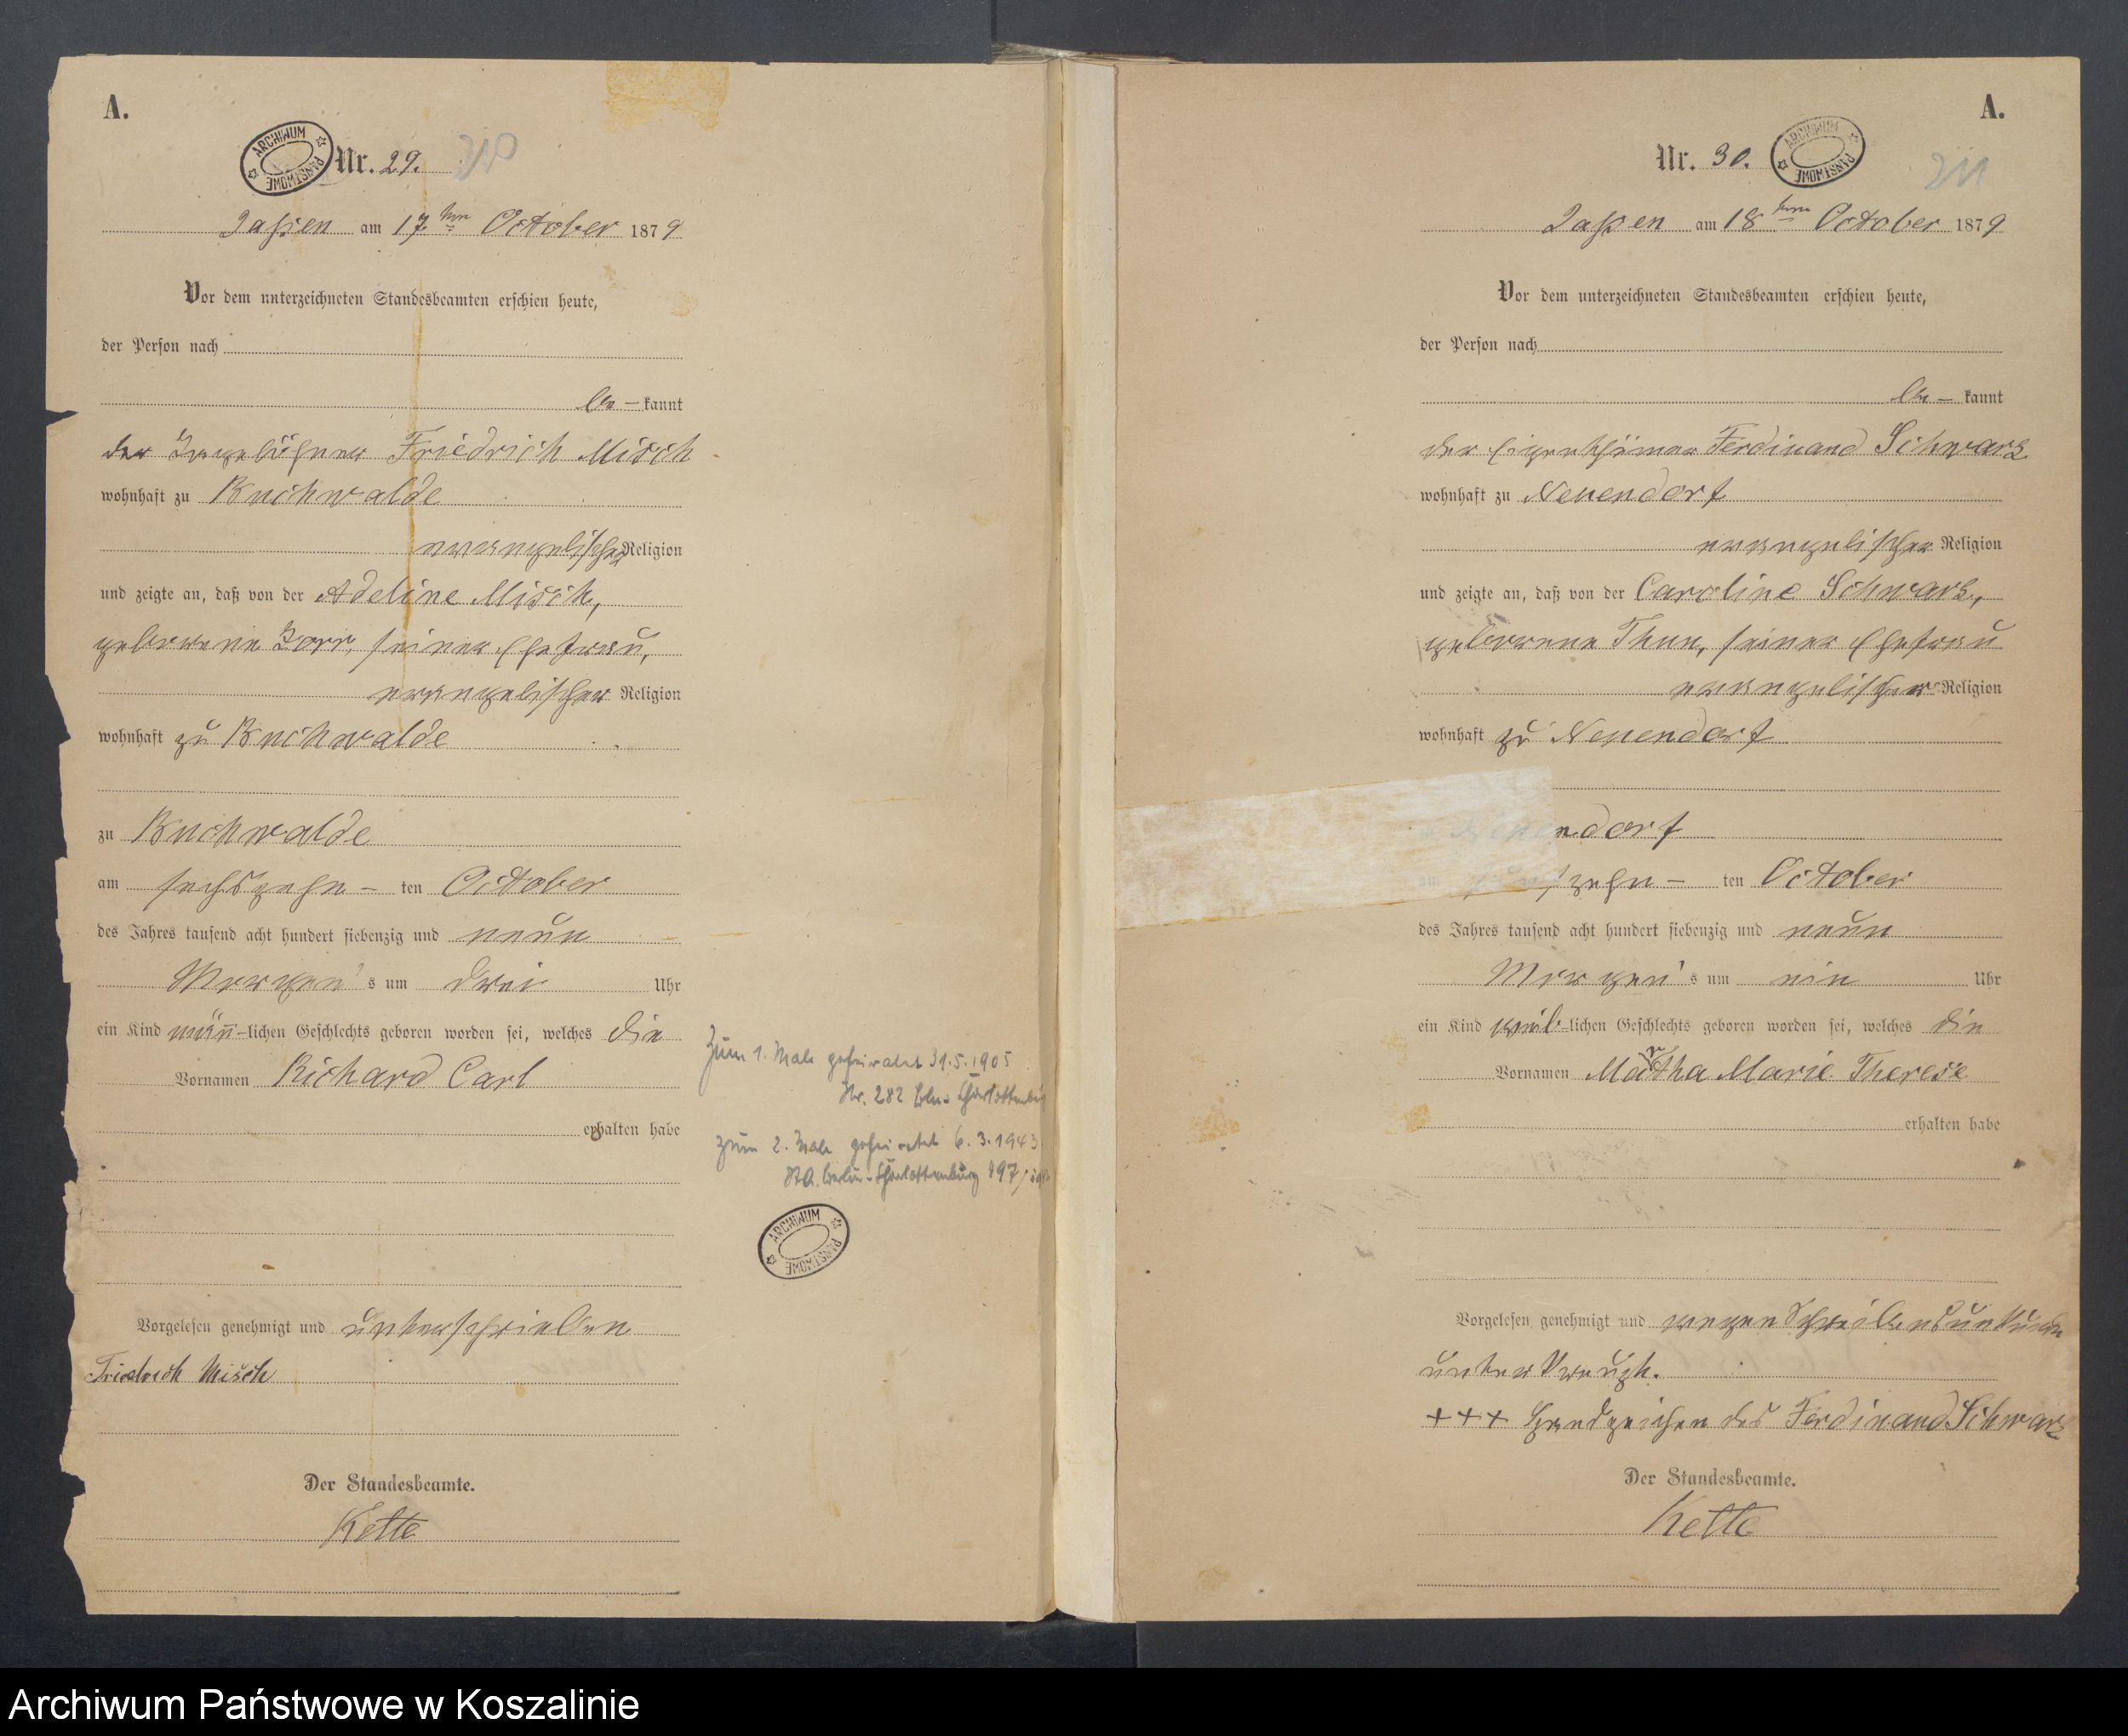 A.
ARCHIWUM PAŃSTWOWE
Nr. 29.
Jassen am 17ten October 1879
Vor dem unterzeichneten Standesbeamten erschien heute,
der Person nach
be- kannt
der Tagelöhner Friedrich Misch
wohnhaft zu Buchwalde
evangelischer Religion
und zeigte an, daß von der Adeline Misch,
geborene seiner Ehefrau,
evangelischer Religion
wohnhaft zu Buchwalde
zu Buchwalde
am sechszehn- ten October
des Jahres tausend acht hundert siebenzig und neun
Morgen's um drei Uhr
ein Kind männ-lichen Geschlechts geboren worden sei, welches die
Vornamen Richard Carl
erhalten habe
Vorgelesen genehmigt und unterschrieben
Friedrich Misch
Der Standesbeamte.
Kette
Zum 1. Male geheiratet 31.5.1905
Nr. 282 Bln-
zum 2. Male geheiratet 6.3.1943
StA. Berlin-Charlottenburg
ARCHIWUM PAŃSTWOWE
A.
Nr. 30.
ARCHIWUM PAŃSTWOWE
311
Jassen am 18ten October 1879
Vor dem unterzeichneten Standesbeamten erschien heute,
der Person nach
be- kannt
der Eigenthümer Ferdinand Schwarz
wohnhaft zu Neuendorf
evangelischer Religion
und zeigte an, daß von der Caroline Schwarz,
geborene Thun, seiner Ehefrau
evangelischer Religion
wohnhaft zu Neuendorf
zu Neuendorf
am zehn- ten October
des Jahres tausend acht hundert siebenzig und neun
Morgen's um ein Uhr
ein Kind weib-lichen Geschlechts geboren worden sei, welches die
Vornamen Martha Marie Therese
erhalten habe
Vorgelesen genehmigt und wegen Schreibensunkunde
unterkreuzt.
+++ Handzeichen des Ferdinand Schwarz
Der Standesbeamte.
Kette
Archiwum Państwowe w Koszalinie